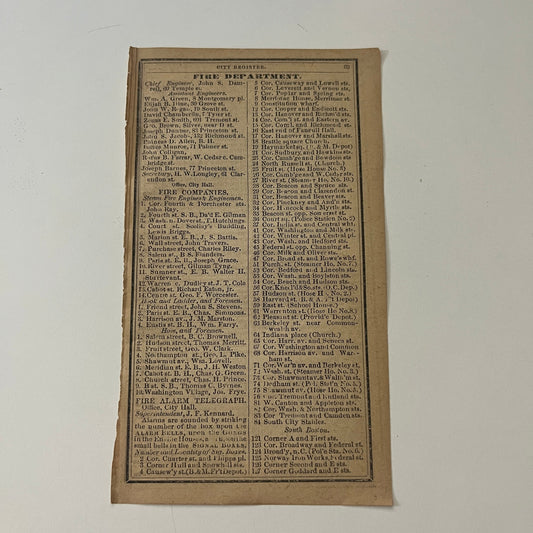 CITY REGISTER.
FIRE DEPARTMENT.
Chief Engineer, John S. Dam-
rell, 60 Temple st.
Assistant Engineers.
Wm. A. Green, 8 Montgomery pl.
Elijah B. Hine, 30 Grove st.
John W. Regan, 79 South st.
David Chamberlin, 7 Tyler st.
Zenas E. Smith, 601 Tremont st.
Geo. Brown, Silver, near D st.
Joseph Dunbar, 81 Princeton st.
John S. Jacobs, 132 Richmond st.
Phineas D. Allen, B. H.
Justus Munroe, 71 Palmer st.
John Colligan,
Rufus B. Farrar, W. Cedar c. Cam-
bridge st.
Joseph Barnes, 77 Princeton st.
Secretary, H. W. Longley, 31 Cla-
rendon st.
Office, City Hall.
FIRE COMPANIES.
Steam Fire Engines & Enginemen.
1. Cor. Fourth & Dorchester sts
John Ray.
2. Fourth st. S. B., Da'd E. Gilman
3. Wash. n. Dover st. T. Hutchings
4. Court st. Scollay's Building,
Lewis Briggs.
5. Marion st. E. B., J. S. Battis.
6. Wall street, John Travers.
7. Purchase street, Charles Riley.
8. Salem st., B S. Flanders.
9. Paris st. E. B., Joseph Grace.
10. River street, Gilman Tyng.
11. Sumner st., E. B. Walter H.
Sturtevant.
12. Warren c. Dudley st J. T. Cole
13. Cabot st. Richard Eaton, jr.
14. Centre st. Geo. F. Worcester.
Hook and Ladder, and Foremen.
1. Friend street, John S. Stevens.
2. Paris st. E. B., Chas. Simmons.
3. Harrison av., J. M. Marston.
4. Eustis st. B. H., Wm. Farry.
Hose, and Foremen.
1. Salem street, B. C. Brownell.
2. Hudson street, Thomas Merritt.
3. Fruit street, Geo. W. Clark.
4. Northampton st., Geo. L. Pike.
5. Shawmut av., Wm. Lovell.
6. Meridian st. E. B., J. H. Weston
7. Cabot st. B. H., Chas. G. Green.
8. Church street, Chas. H. Prince.
9. B st. S. B., Thomas C. Byrnes.
10. Washington Village, Jos. Frye.
FIRE ALARM TELEGRAPH.
Office, City Hall.
Superintendent, J. F. Kennard.
Alarms are sounded by striking
the number of the box upon the
ALARM BELLS, upon the Gongs
in the Engine Houses, and on the
small bells in the SIGNAL BOXES.
Number and Location of Sig. Boxes.
2 Cor. Charter st. and Phipps pl.
3 Corner Hull and Snowhill sts.
4 Causew'y st. (B.& M.Fr't Depot.)
5 Cor. Causeway and Lowell sts.
6 Cor. Leverett and Vernon sts.
7 Cor. Poplar and Spring sts.
8 Merrimac House, Merrimac st.
9 Constitution wharf.
12 Cor. Cooper and Endicott sts.
13 Cor. Hanover and Richm'd sts.
14 Cor. Com'l st. and Eastern av.
15 Cor. Coml. and Richmond st.
16 East end of Faneuil Hall.
17 Cor. Hanover and Marshall sts.
18 Brattle square Church
19 Haymarket sq. (B. & M. Depot)
21 Cor. Sudbury and Hawkins sts.
23 Cor. Camb'ge and Bowdoin sts
24 North Russell st. (Church.)
25 Fruit st. (Hose House No. 3)
26 Cor. Camb'ge and W Cedar sts.
27 River st. (Steamer Ho. No. 10.)
28 Cor. Beacon and Spruce sts.
29 Cor. Beacon and Clarendon st.
31 Cor. Beacon and Beaver sts.
32 Cor. Pinckney and And'n sts.
34 Cor. Hancock and Myrtle sts.
35 Beacon st. opp Somerset st.
36 Court st. (Police Station No. 2)
37 Cor. India st. and Central whf.
41 Cor. Washington and Milk sts.
42 Cor. Winter st. and Central pl.
43 Cor. Wash. and Bedford sts.
45 Federal st. opp. Channing st.
46 Cor. Milk and Oliver sts.
47 Cor. Broad st. and Rowe's whf.
51 Purch. st. (Steamer Ho. No. 7.)
52 Cor. Bedford and Lincoln sts.
53 Cor. Wash. and Boylston sts.
54 Cor. Beach and Hudson sts.
56 Cor. Kneel'd & So. sts. (O.C. Dep.)
57 Hudson st. (Hose H. No. 2.)
58 Harvard st. B. & A. F't Depot)
59 East st. (School House.)
61 Warrenton st. (Hose No. 8.)
62 Pleasant st. (Provid'e Depot.)
63 Berkeley st. near Common-
wealth av.
64 Indiana place (Church.)
65 Cor. Harr. av. and Seneca st.
67 Cor. Washington and Common
68 Cor. Harrison av. and War-
ham st.
71 Cor. War'n av. and Berkeley st.
72 Wash. st. (Steamer Ho. No. 3.)
73 Cor. Shawmut av. & Walth'm st.
74 Dedham st. (Pol. Stat'n No. 5.)
75 Shawmut av. (Hose Ho. No. 5.)
76 Cor. Tremont and Rutland sts.
81 W. Canton and Appleton sts.
82 Cor. Wash. & Northampton sts.
83 Cor. Tremont and Camden sts.
84 South City Stables.
South Boston.
121 Corner A and First sts.
123 Cor. Broadway and Federal st.
124 Broad'y, n. C. (Pol'e Sta. No. 6.)
125 Norway Iron Works, Federal st.
126 Corner Second and E sts.
127 Corner Goddard and E sts.